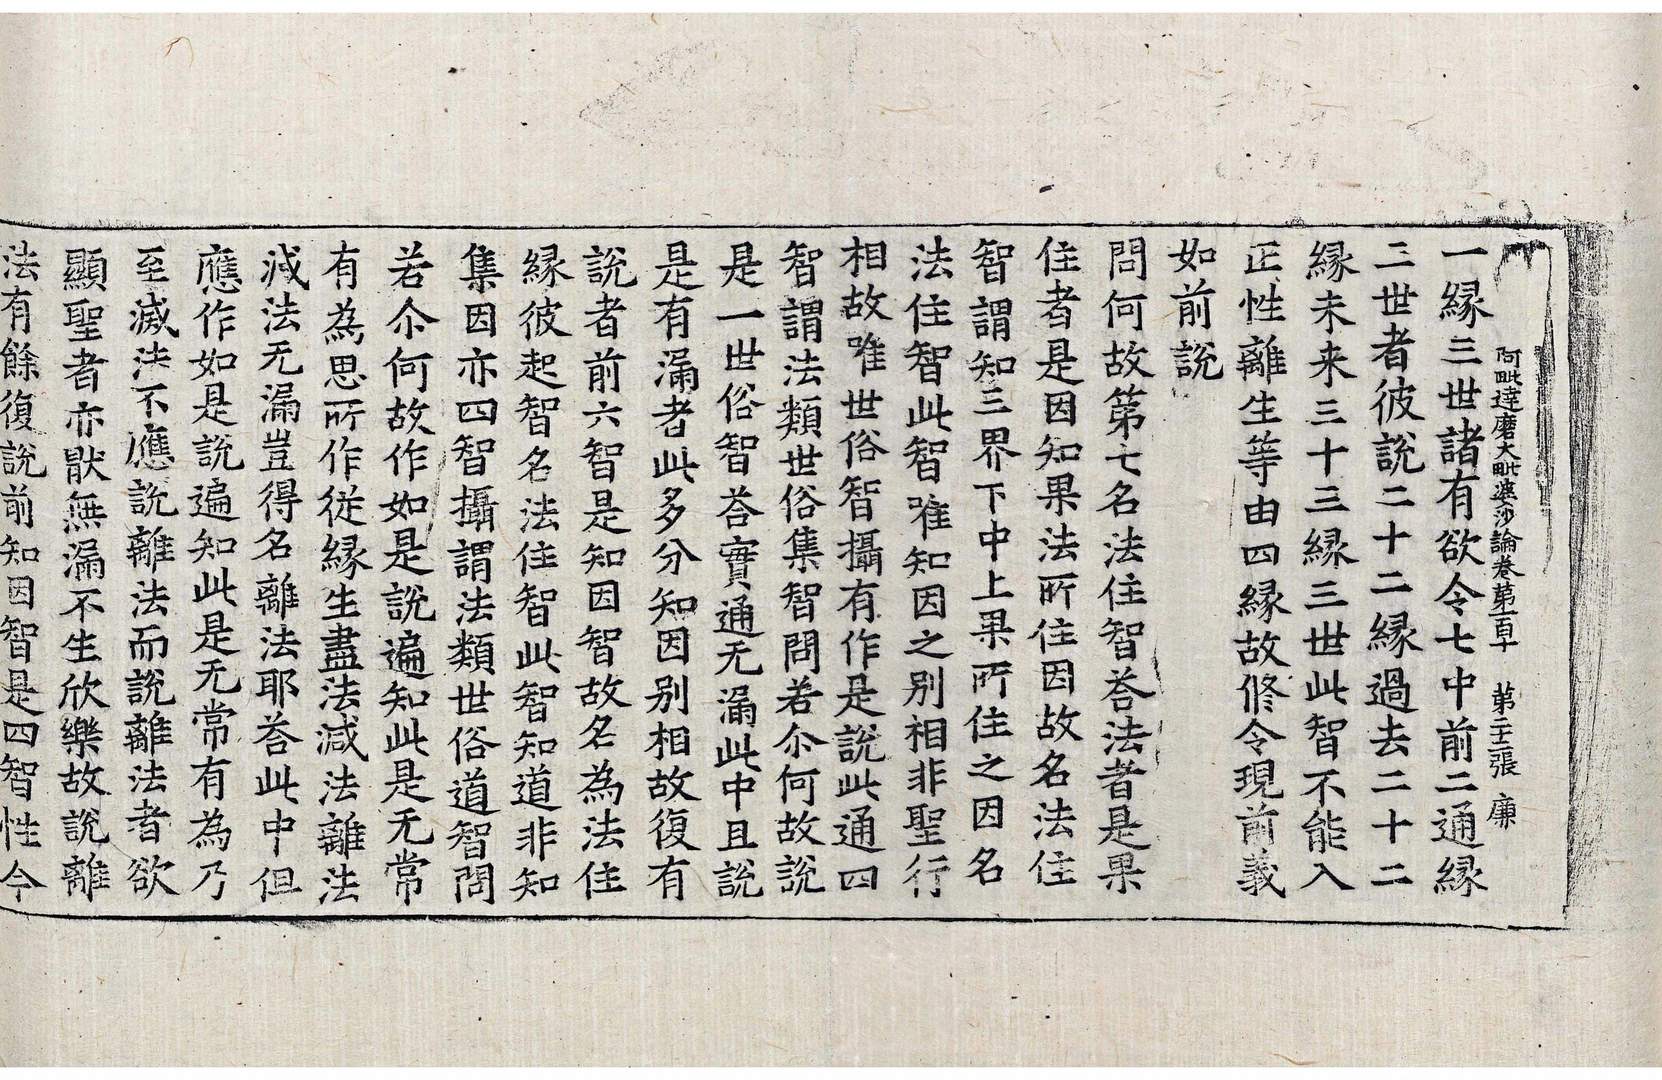 阿毗達磨大毗婆沙論卷第一百十　第二十三張　廉
一緣三世諸有欲令七中前二通緣
三世者彼說二十二緣過去二十二
緣未来三十三緣三世此智不能入
正性離生等由四緣故修令現前義
如前說
問何故第七名法住智荅法者是果
住者是因知果法所住因故名法住
智謂知三界下中上果所住之因名
法住智此智唯知因之別相非聖行
相故唯世俗智攝有作是說此通四
智謂法類世俗集智問若尒何故說
是一世俗智荅實通无漏此中且說
是有漏者此多分知因別相故復有
說者前六智是知因智故名為法住
緣彼起智名法住智此智知道非知
集因亦四智攝謂法類世俗道智問
若尒何故作如是說遍知此是无常
有為思所作從緣生盡法減法離法
減法无漏豈得名離法耶荅此中但
應作如是說遍知此是无常有為乃
至滅法不應說離法而說離法者欲
顯聖者亦猒無漏不生欣樂故說離
法有餘復說前知因智是四智性今